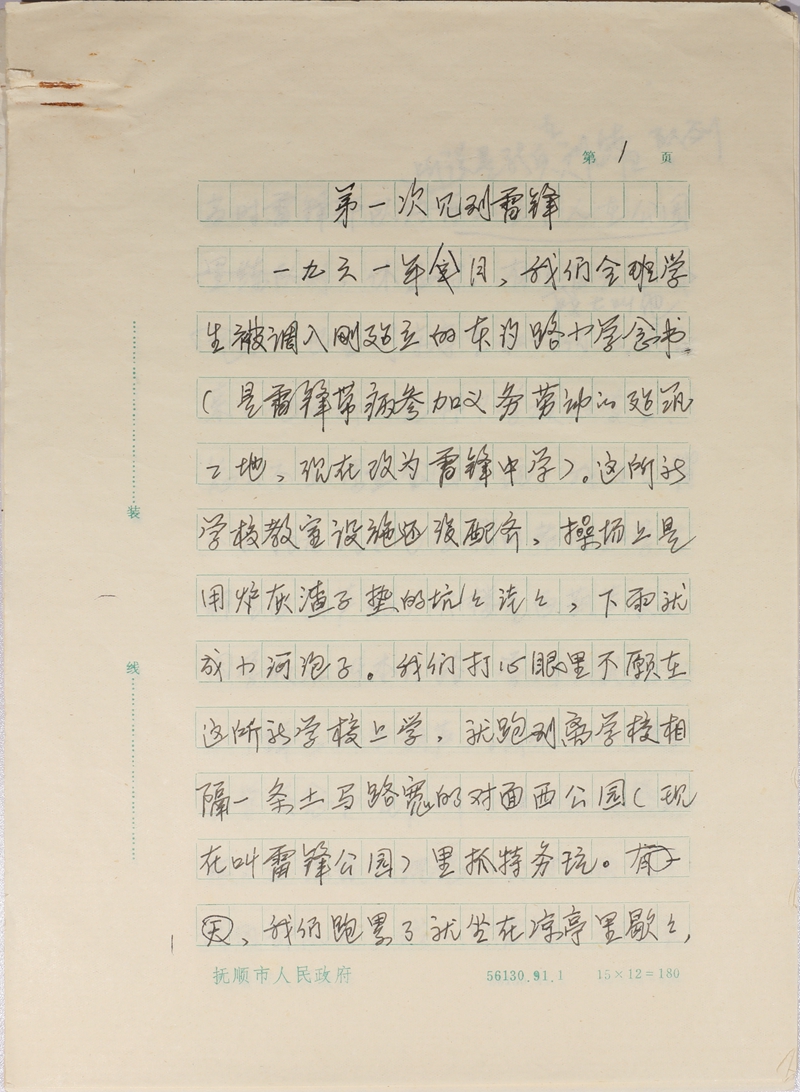 第1页
第一次见到雷锋
一九六一年 月，我们全班学
生被调入刚建立的本溪路小学念书。
（是雷锋带病参加义务劳动的建筑
工地、现在改为雷锋中学）。这所新
学校教室设施还没配齐、操场上是
用炉灰渣子垫的坑坑洼洼，下雨就
成小河泡子。我们打心眼里不愿在
这所新学校上学，就跑到离学校相
隔一条土马路宽的对面西公园（现
在叫雷锋公园）里抓特务玩。有一
天、我们跑累了就坐在凉亭里歇歇，
装
线
抚顺市人民政府
56130.91.1
15×12=180